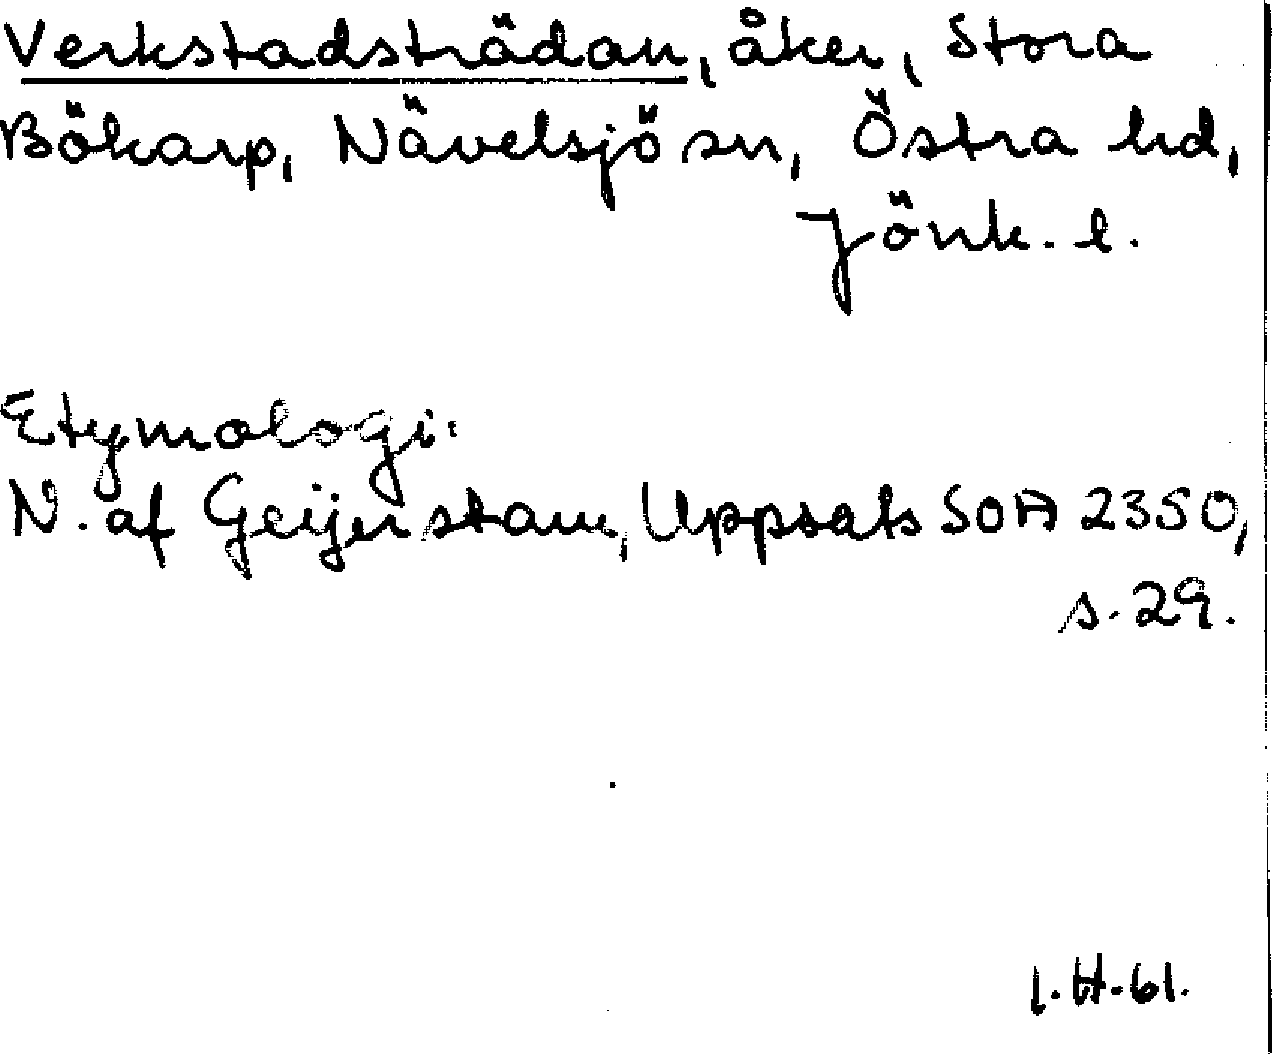 Verkstadsträdan, åker, Stora
Bökarp, Nävelsjö sn, Östra hd,
Jönk. l.
Etymologi:
N. af Geijerstam, Uppsats SOA 2350,
s. 29.
I.H.61.